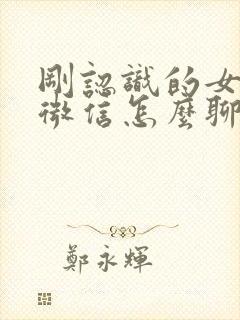 剛認識的女
微信怎麼聊
鄭永輝